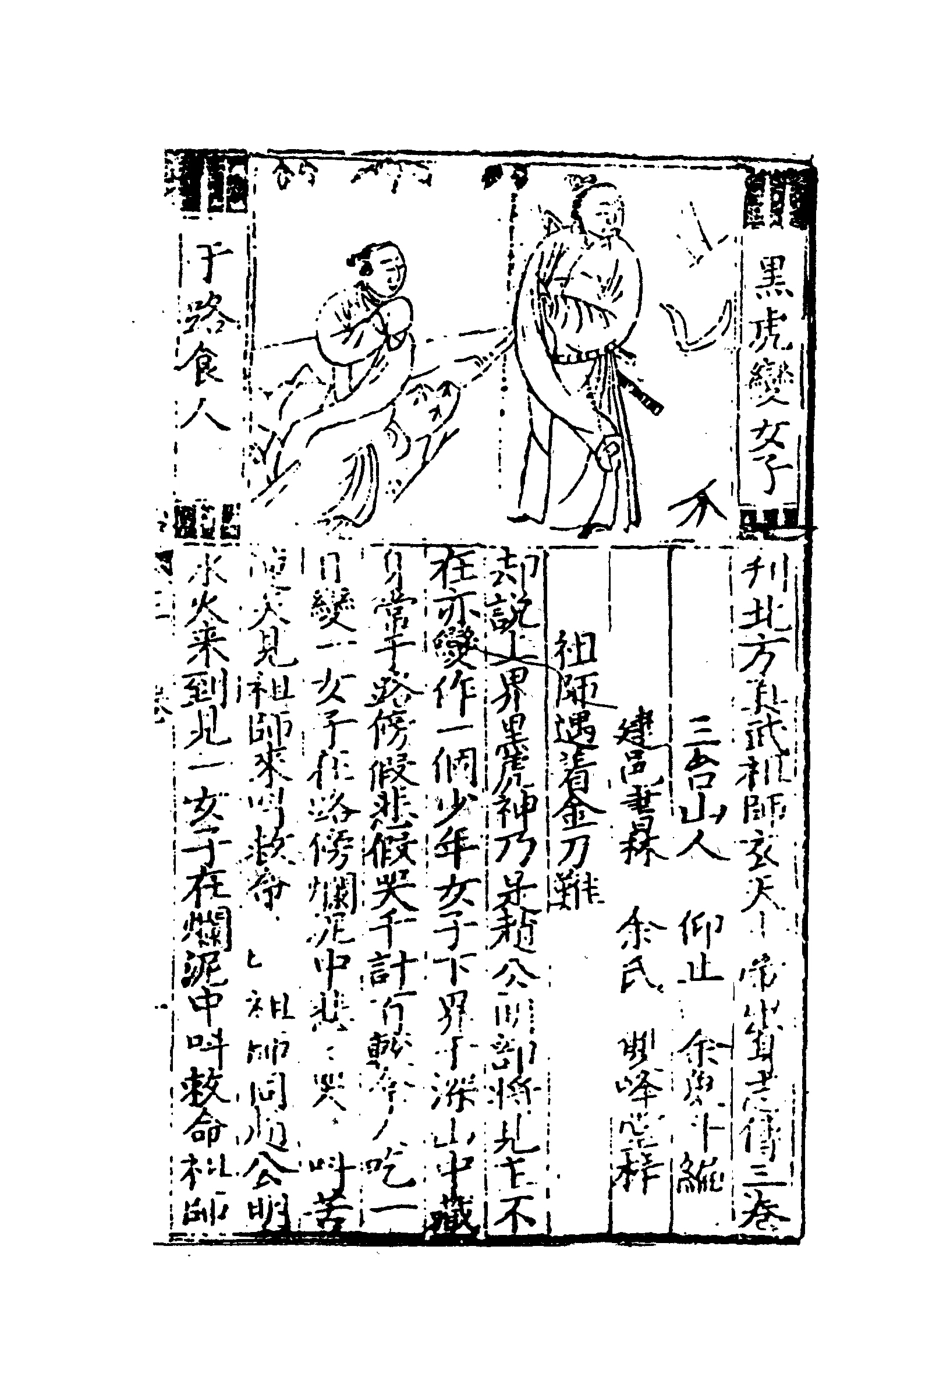 黑虎變女子
于路食人
刊北方真武祖師玄天上帝出身志傳三卷
三台山人 仰止 余象斗編
建邑書林 余氏 雙峰堂梓
祖師遇着金刀難
却説上界黑虎神乃是趙公明部將見主不
在亦變作一個少年女子下界于深山中藏
身常于路傍假悲假哭千計百較 吃一
日變一女子在路傍爛泥中悲:哭: 叫苦
見祖師來叫救命 祖師同趙公明
水火来到見一女子在爛泥中叫救命祖師